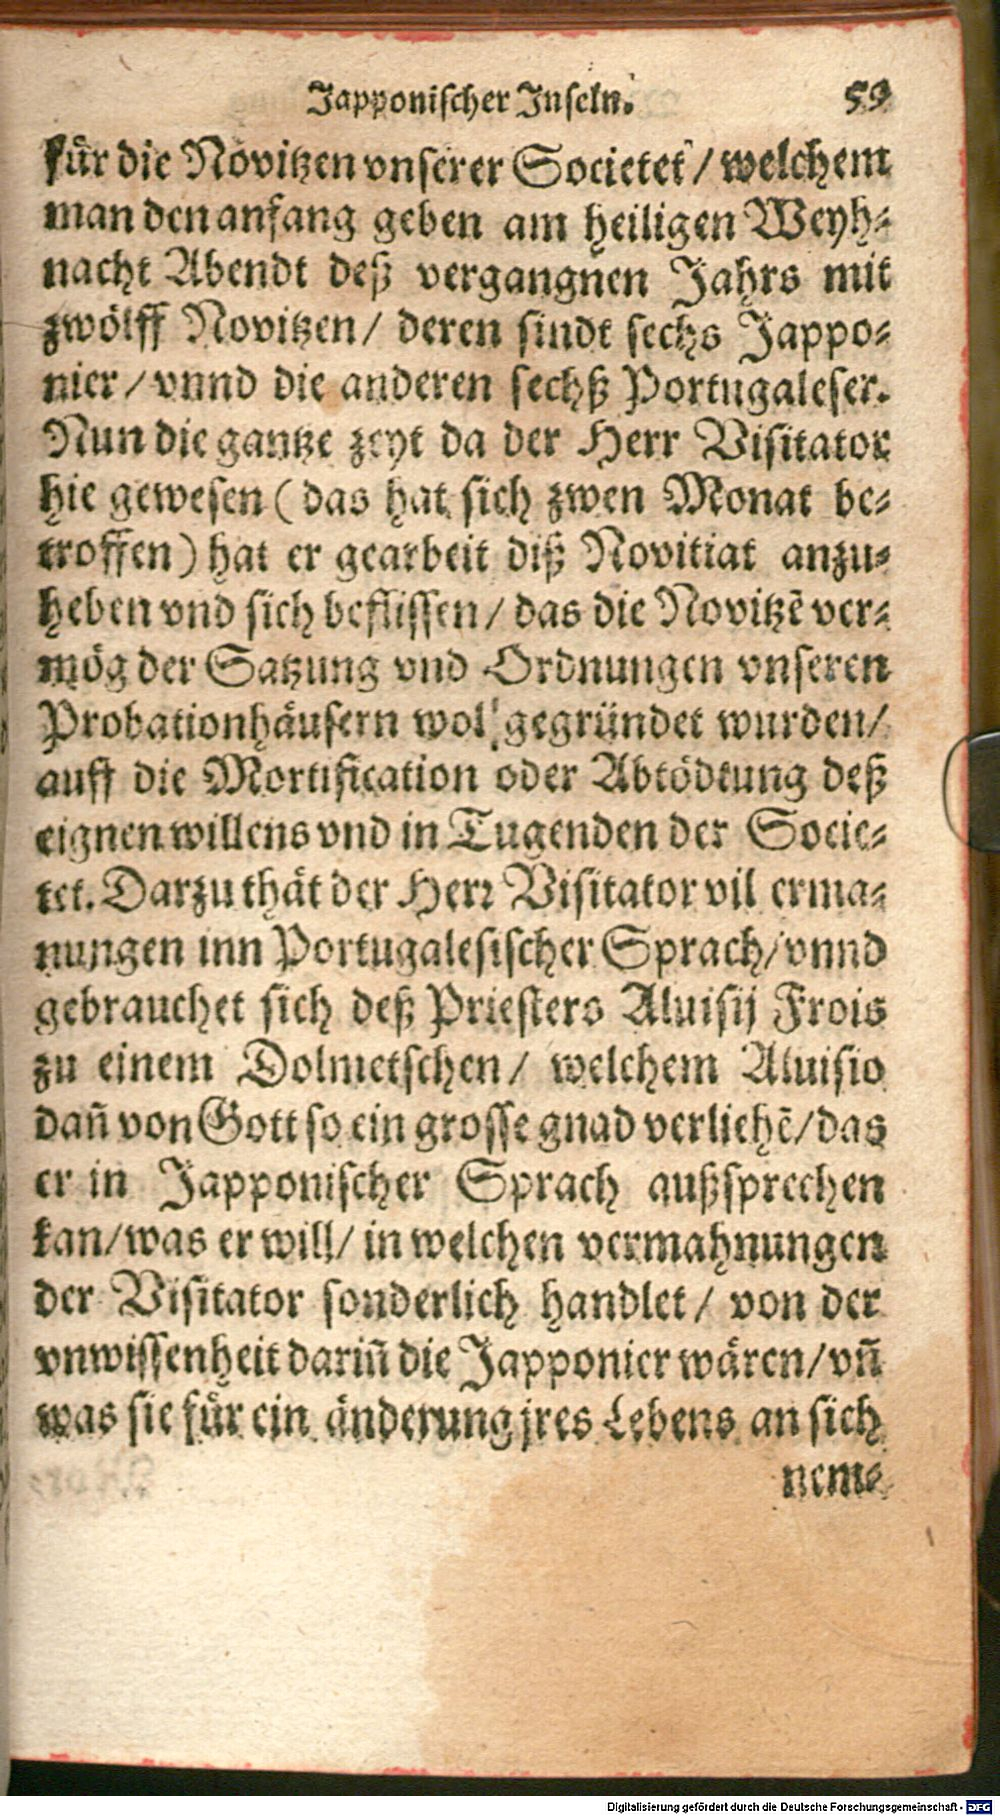 Japponischer Inseln. 59
für die Novitzen vnserer Societet / welchem
man den anfang geben am heiligen Weyh-
nacht Abendt deß vergangnen Jahrs mit
zwölff Novitzen / deren sindt sechs Jappo-
nier / vnnd die anderen sechß Portugaleser.
Nun die gantze zeyt da der Herr Visitator
hie gewesen ( das hat sich zwen Monat be-
troffen ) hat er gearbeit diß Novitiat anzu-
heben vnd sich beflissen / das die Novitzē ver-
mög der Satzung vnd Ordnungen vnseren
Probationhäusern wol gegründet wurden /
auff die Mortification oder Abtödtung deß
eignen willens vnd in Tugenden der Socie-
tet. Darzu thät der Herr Visitator vil erma-
nungen inn Portugalesischer Sprach / vnnd
gebrauchet sich deß Priesters Aluisij Frois
zu einem Dolmetschen / welchem Aluisio
dañ von Gott so ein grosse gnad verliehē / das
er in Japponischer Sprach außsprechen
kan / was er will / in welchen vermahnungen
der Visitator sonderlich handlet / von der
vnwissenheit dariñ die Japponier wären / vñ
was sie für ein änderung jres Lebens an sich
nem-
Digitalisierung gefördert durch die Deutsche Forschungsgemeinschaft - DFG